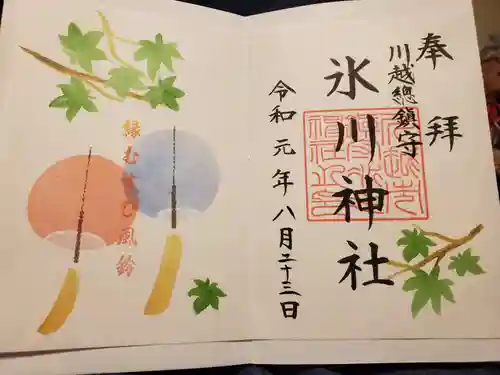 奉拝
川越總鎮守
氷川神社
令和元年八月二十三日
縁むすび風鈴